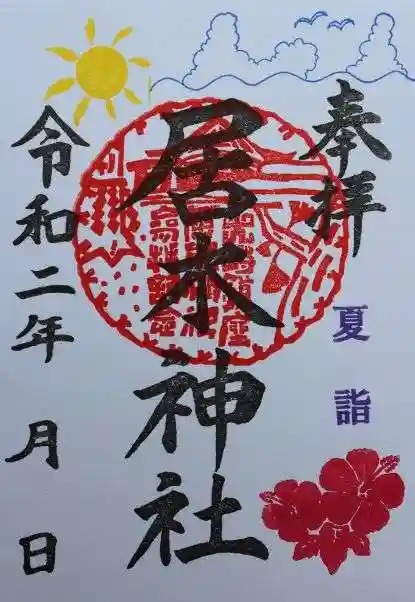 奉拝
夏詣
居木神社
令和二年 月 日